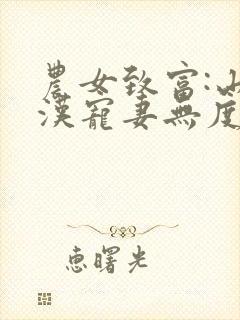 農女致富:山
漢寵妻無度
惠曙光